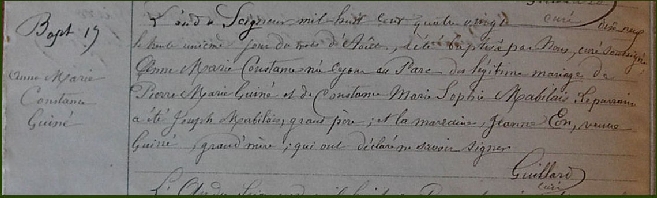 Bapt 17
Anne Marie
Constance
Guiné
L'an du Seigneur mil huit cent quatre vingt dix neuf
le trente unième jour du mois d'Août, a été baptisé par Nous, curé soussigné,
Anne Marie Constance née ce jour au Parc du légitime mariage de
Pierre Marie Guiné et de Constance Marie Sophie Mabilais. Le parrain
a été Joseph Mabilais, grand père, et la marraine, Jeanne Eon, veuve
Guiné, grand'mère, qui ont déclaré ne savoir signer
Guillard
curé
L'An du Seigneur mil huit cent